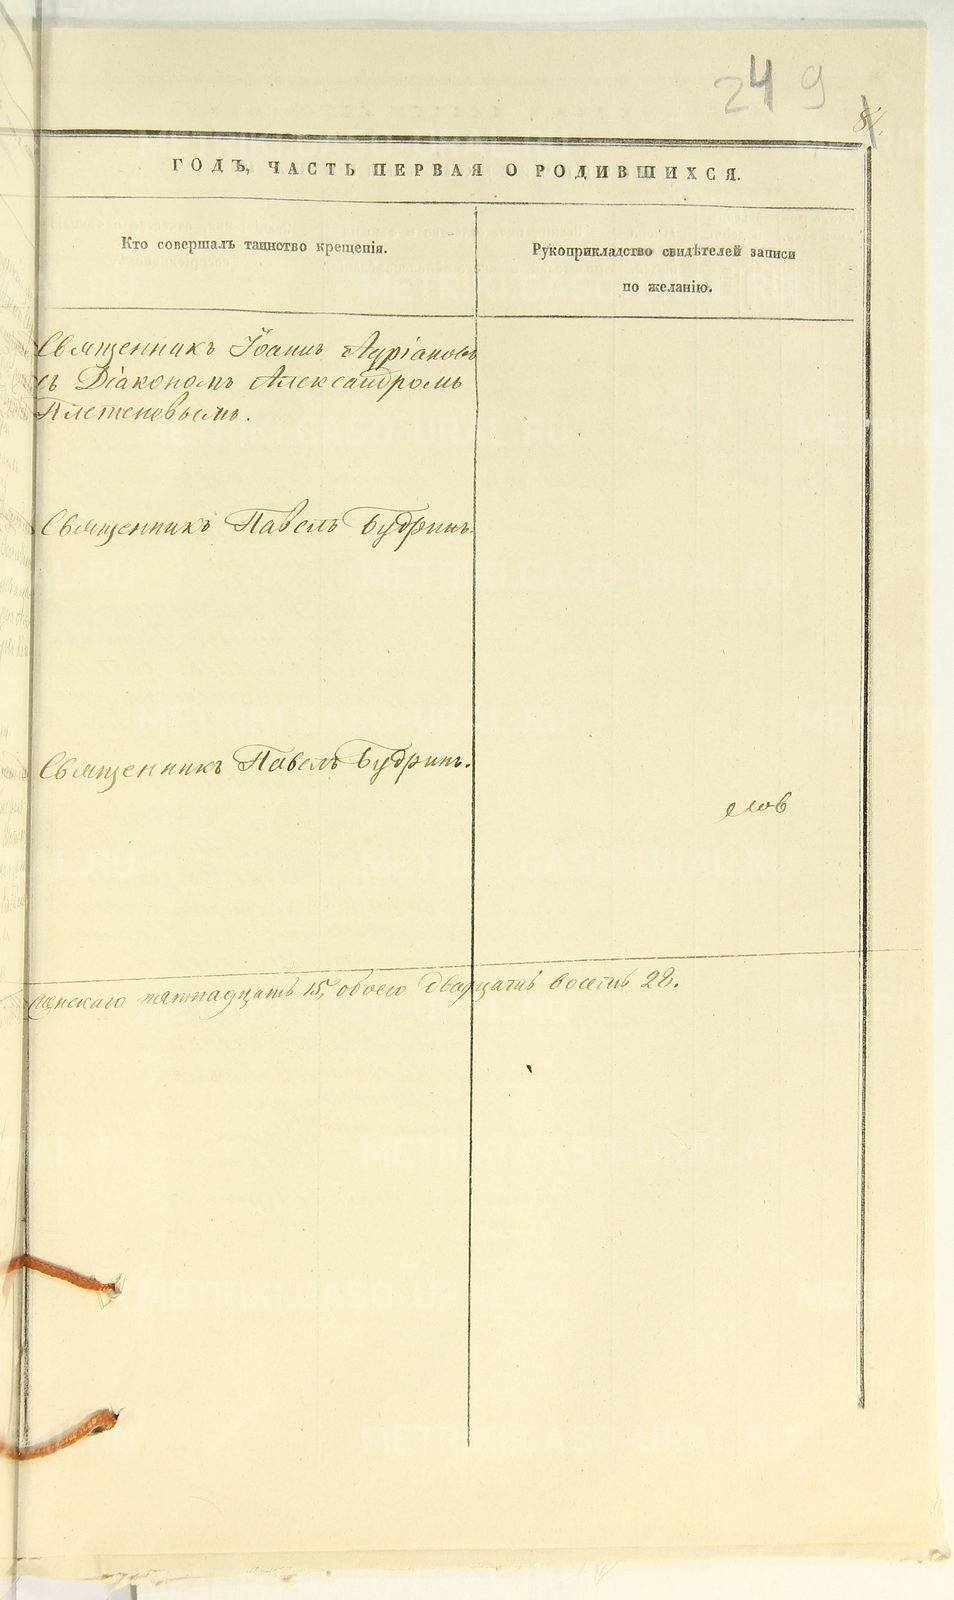 249
84
ГОДЪ, ЧАСТЬ ПЕРВАЯ О РОДИВШИХСЯ.
Кто совершалъ таинство крещенія.
Рукоприкладство свидѣтелей записи
по желанію.
Священникъ Іоаннъ Адріановъ
съ Діакономъ Александромъ
Плетеневымъ.
Священникъ Павелъ Будринъ.
Священникъ Павелъ Будринъ.
женскаго пятнадцать 15, обоего двадцать восемь 28.
METRIKI.GASO-URAL.RU